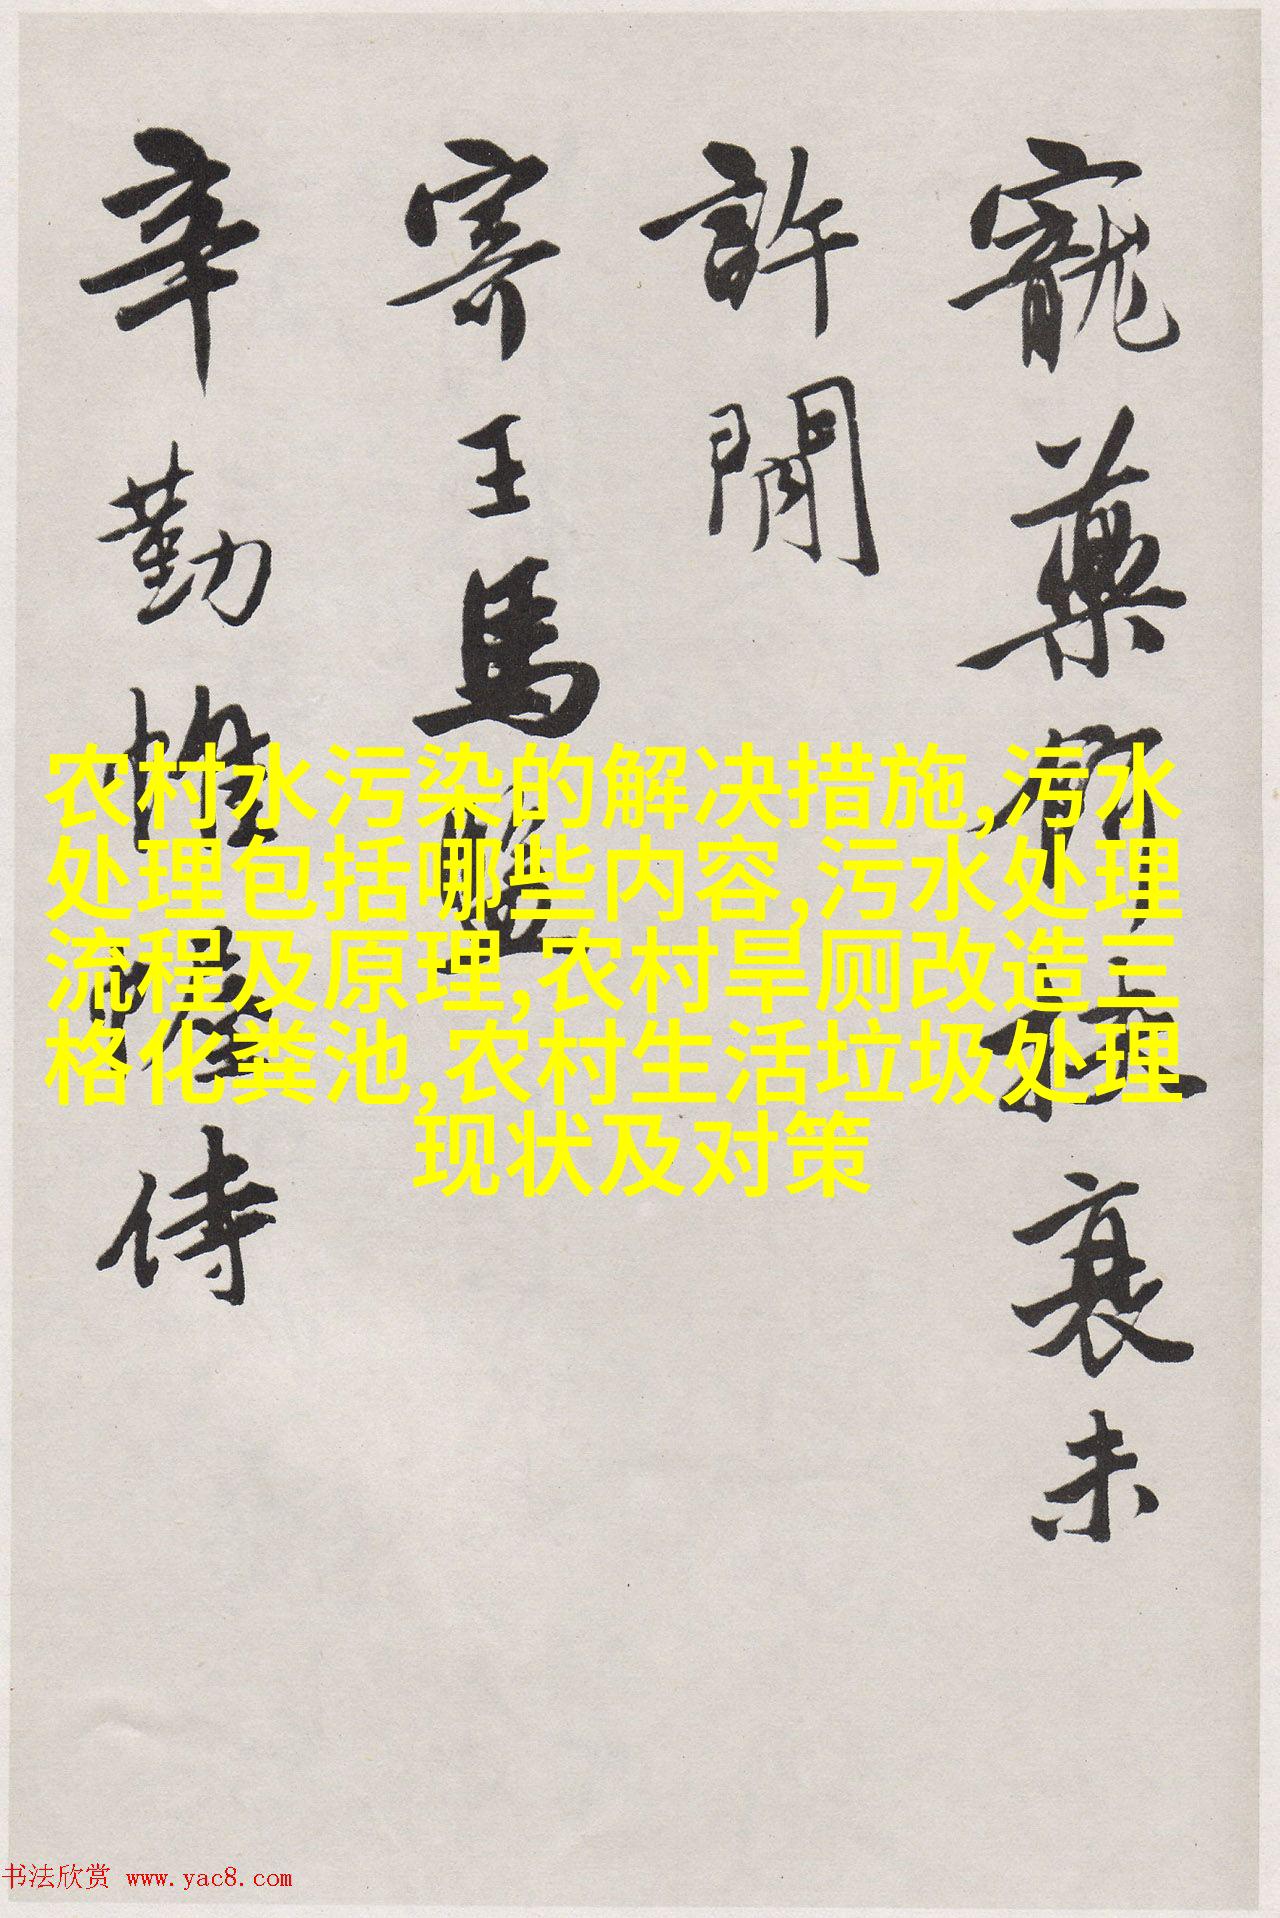 寵藥衰未
許閒
寄王馬
辛勤惟侍
农村水污染的解决措施,污水
处理包括哪些内容,污水处理
流程及原理,农村旱厕改造三
格化粪池,农村生活垃圾处理
现状及对策
书法欣赏 www.yac8.com